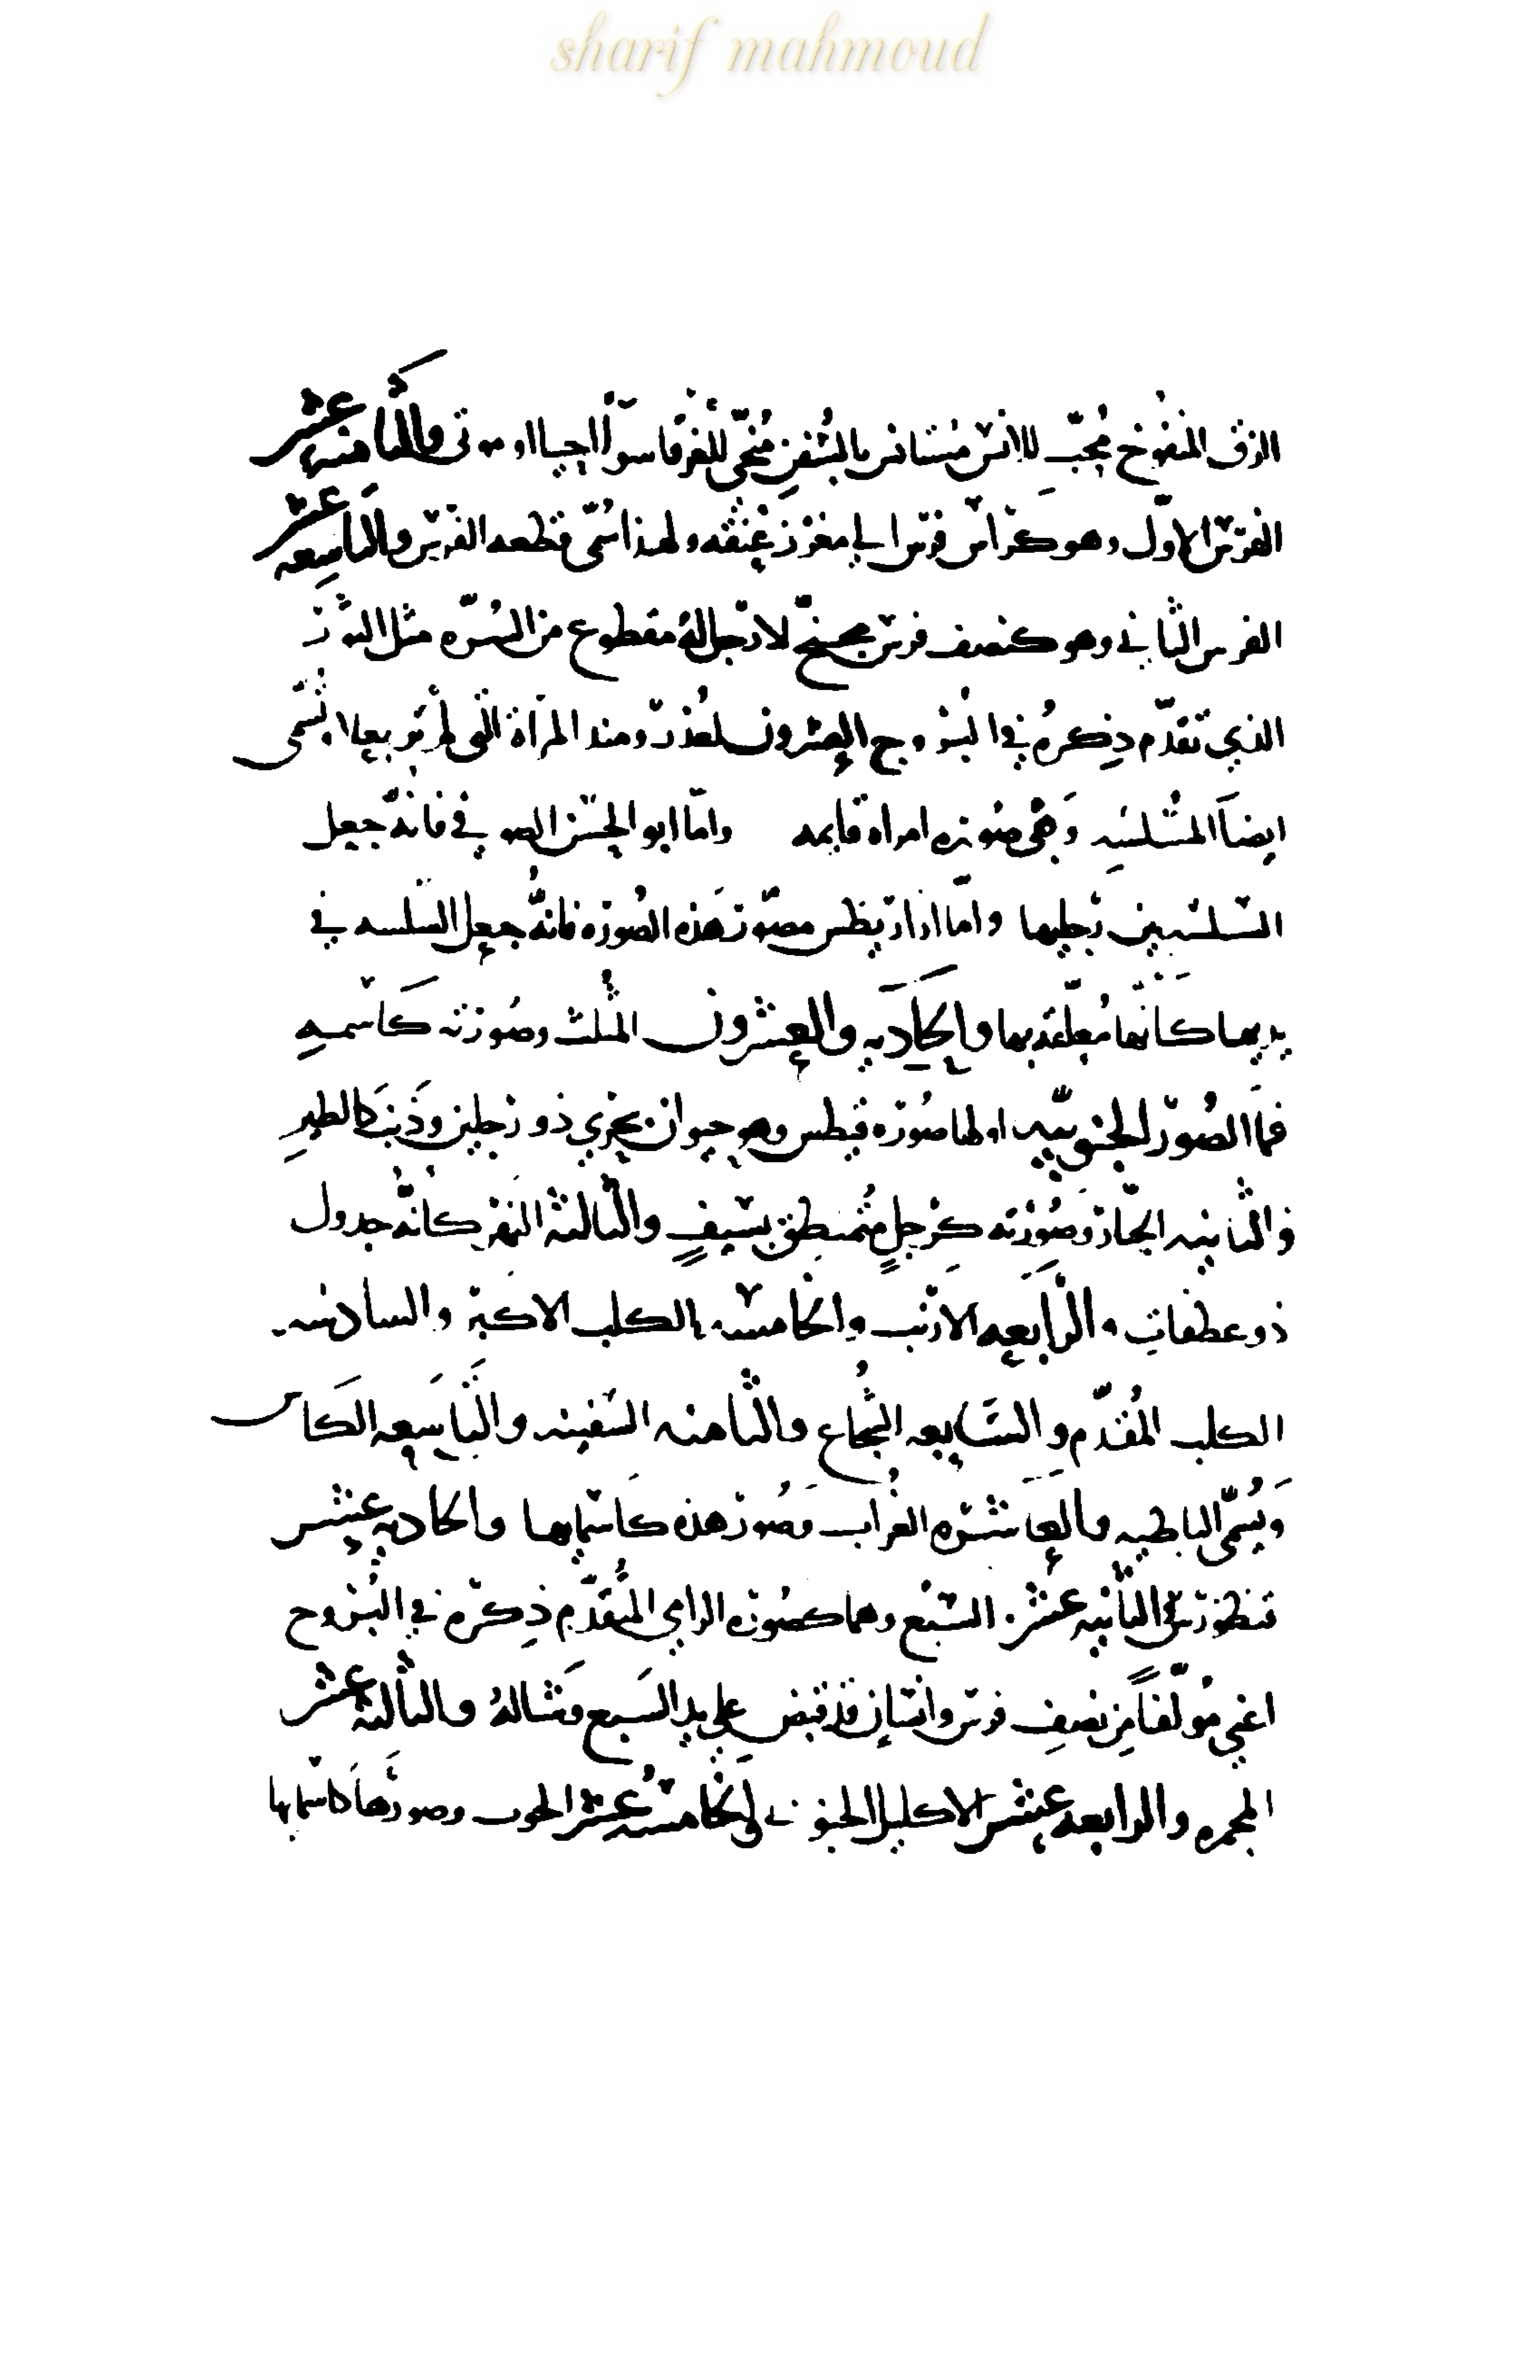 sharif mahmoud
الزق المنفوخ مُحِبّ للانس مستانس بالسُفنِ مُنجّي للغَرقا سوآً احيااو موتى والثامنه عشر
الفرس الاوّل وهو كراس فرس الي مغرز عنقه ولهذا سُمّى قطعه الفرس والتاسعه عشر
الفرس الثاني وهو كنصف فرس مجنح لا رجل لهُ مقطوع من السُرّه مثل الثور
الذي تقدّم ذِكرهُ في البُروج العشرون المرآة التى لم تر بعلا و تسَمّى
ايضاً المسلسَله وَهى صُورة امراه قايمه واما ابو الحسَن الصوفي فانهُ جعل
السلسه بين رجليها واما اراد يطس مصوّر هذه الصُوره فانهُ جعل السلسه في
يديها كانها مُعلقه بها والحاديه والعشرون المثلث وصُورته كَاسمهِ
فما الصُور الجنوبيّه اولها صُورة قيطس وهو حيوان بحري ذو رجلين وذَنبَ كالطيرِ
والثانيه الجبّار وصُورته كرَجلٍ مُتمنطق بسَيفٍ والثالثه النهر كانّهُ جدول
ذو عطفاتٍ والرابعه الارنب والخامسه الكلب الاكبر والسادسه
الكلب المُقدّم والسَابعه الشُجاع والثامنه السفينه والتاسَعه الكَاس
وَيُسمّى الباطيه والعَاشره الغُراب وصُور هذه كَاسمايها والحاديه عشر
قنطورس الثانيه عشر السَبُع وهما كصُورة الرامي المُتقدّم ذِكره في البُروج
اعني مُولفاً من نصفِ فرس وانسَان قد قبض على يد السَبع وشالهُ والثالثه عشر
المجمره والرابعه عشر الاكليل الجنوني والخامسه عشر الحوت وصورها كَاسمايها